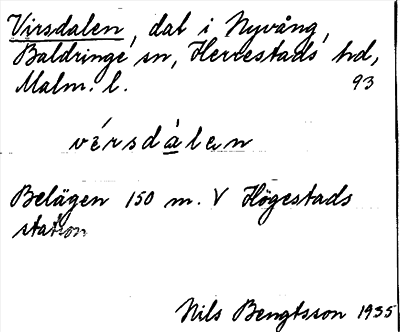 Virsdalen, dal i Nyvång,
Baldringe sn, Herrestads hd,
Malm. l. 93
vérsdàlen
Belägen 150 m. V Högestads
station
Nils Bengtsson 1935